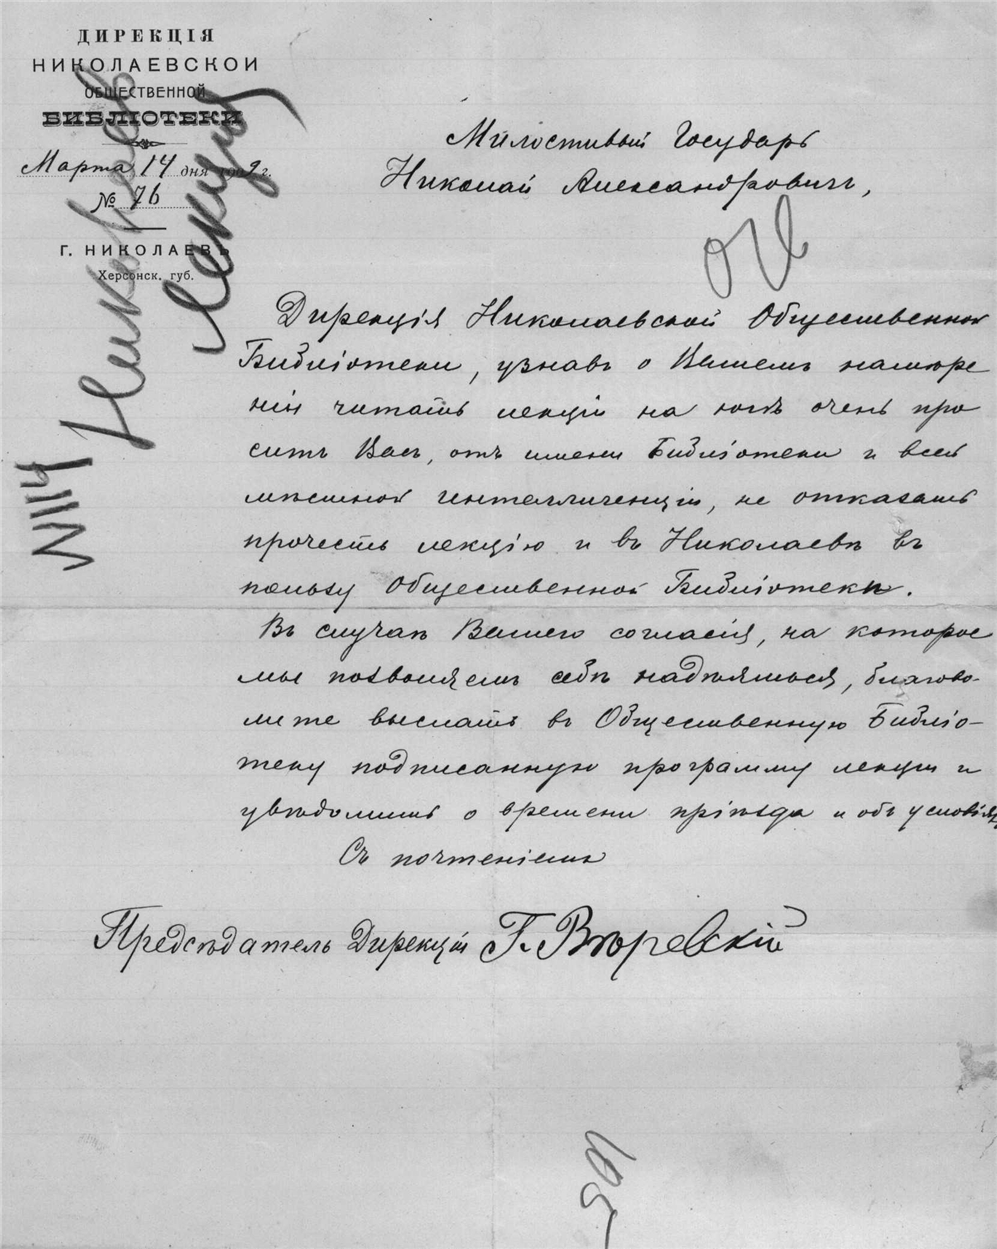 ДИРЕКЦІЯ
НИКОЛАЕВСКОЙ
ОБЩЕСТВЕННОЙ
БИБЛІОТЕКИ
Марта 14 дня 1909 г.
№ 76
Г. НИКОЛАЕВЪ
Херсонск. губ.
Николаев
Лекция
№ 114
Милостивый Государь
Николай Александровичъ,
Дирекція Николаевской Общественной
Библіотеки, узнавъ о Вашемъ намѣре
ніи читать лекціи на югѣ очень про
ситъ Васъ, отъ имени Библіотеки и всей
мѣстной интеллигенціи, не отказать
прочесть лекцію и въ Николаевѣ въ
пользу Общественной Библіотеки.
Въ случаѣ Вашего согласія, на которое
мы позволяемъ себѣ надѣяться, благово-
лите выслать въ Общественную Библіо-
теку подписанную программу лекціи и
увѣдомить о времени пріѣзда и объ условіях
Съ почтеніемъ
Предсѣдатель Дирекціи Г. Вѣревскій